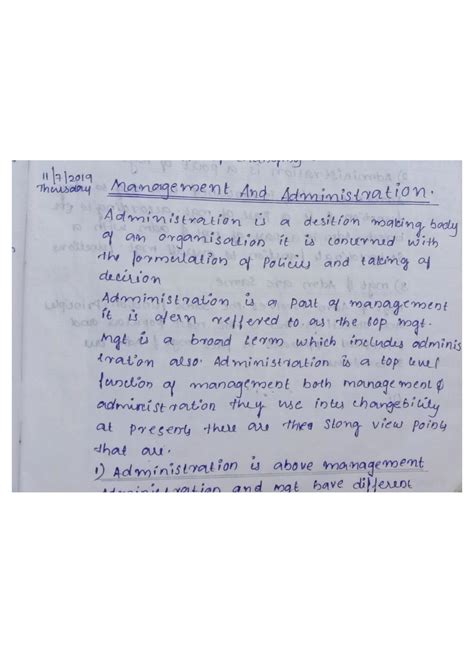 11/7/2019
Thursday
Management And Administration.
Administration is a desition making body
of an organisation it is concerned with
the formulation of Policies and taking of
decision
Administration is a Part of management
it is ofern reffered to as the top mgt.
mgt is a broad term which includes adminis
tration also. Administration is a top level
function of management both management &
administration they use inter changebility
at present there are three Stong view points
that are.
1) Administration is above management
Administration and mgt have different